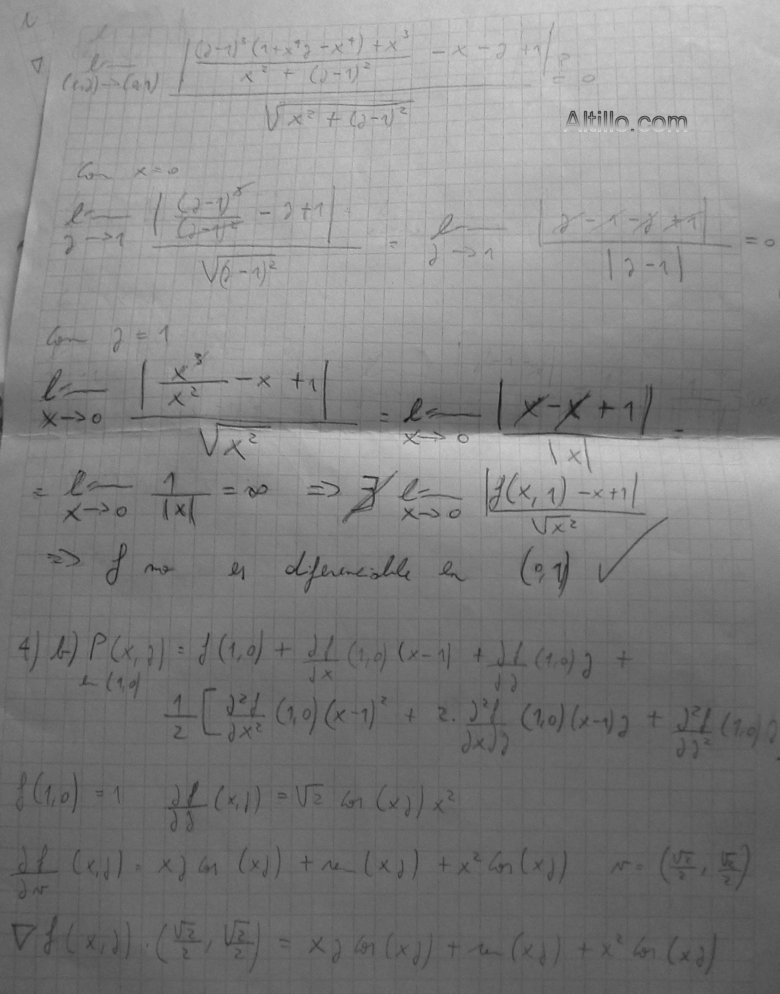 lim (x,y)→(0,1) | ((y-1)³(1+x⁴y-x⁴)+x³)/(x²+(y-1)²) -x-y+1 | / √(x²+(y-1)²) =? 0
Altillo.com
Con x=0
lim y→1 | (y-1)³/(y-1)² -y+1 | / √(y-1)² = lim y→1 |y-1-y+1| / |y-1| = 0
Con y=1
lim x→0 | x³/x² -x+1 | / √x² = lim x→0 |x-x+1| / |x| =
= lim x→0 1/|x| = ∞ ⇒ ∄ lim x→0 |f(x,1)-x+1| / √x²
⇒ f no es diferenciable en (0,1) ✓
4) b) P(x,y) = f(1,0) + ∂f/∂x (1,0)(x-1) + ∂f/∂y (1,0)y +
en (1,0)
1/2 [ ∂²f/∂x² (1,0)(x-1)² + 2. ∂²f/∂x∂y (1,0)(x-1)y + ∂²f/∂y² (1,0)
f(1,0) = 1 ∂f/∂y (x,y) = √2 cos(xy) x²
∂f/∂v (x,y) = xy cos(xy) + sen(xy) + x² cos(xy) v = (√2/2, √2/2)
∇f(x,y).(√2/2, √2/2) = xy cos(xy) + sen(xy) + x² cos(xy)